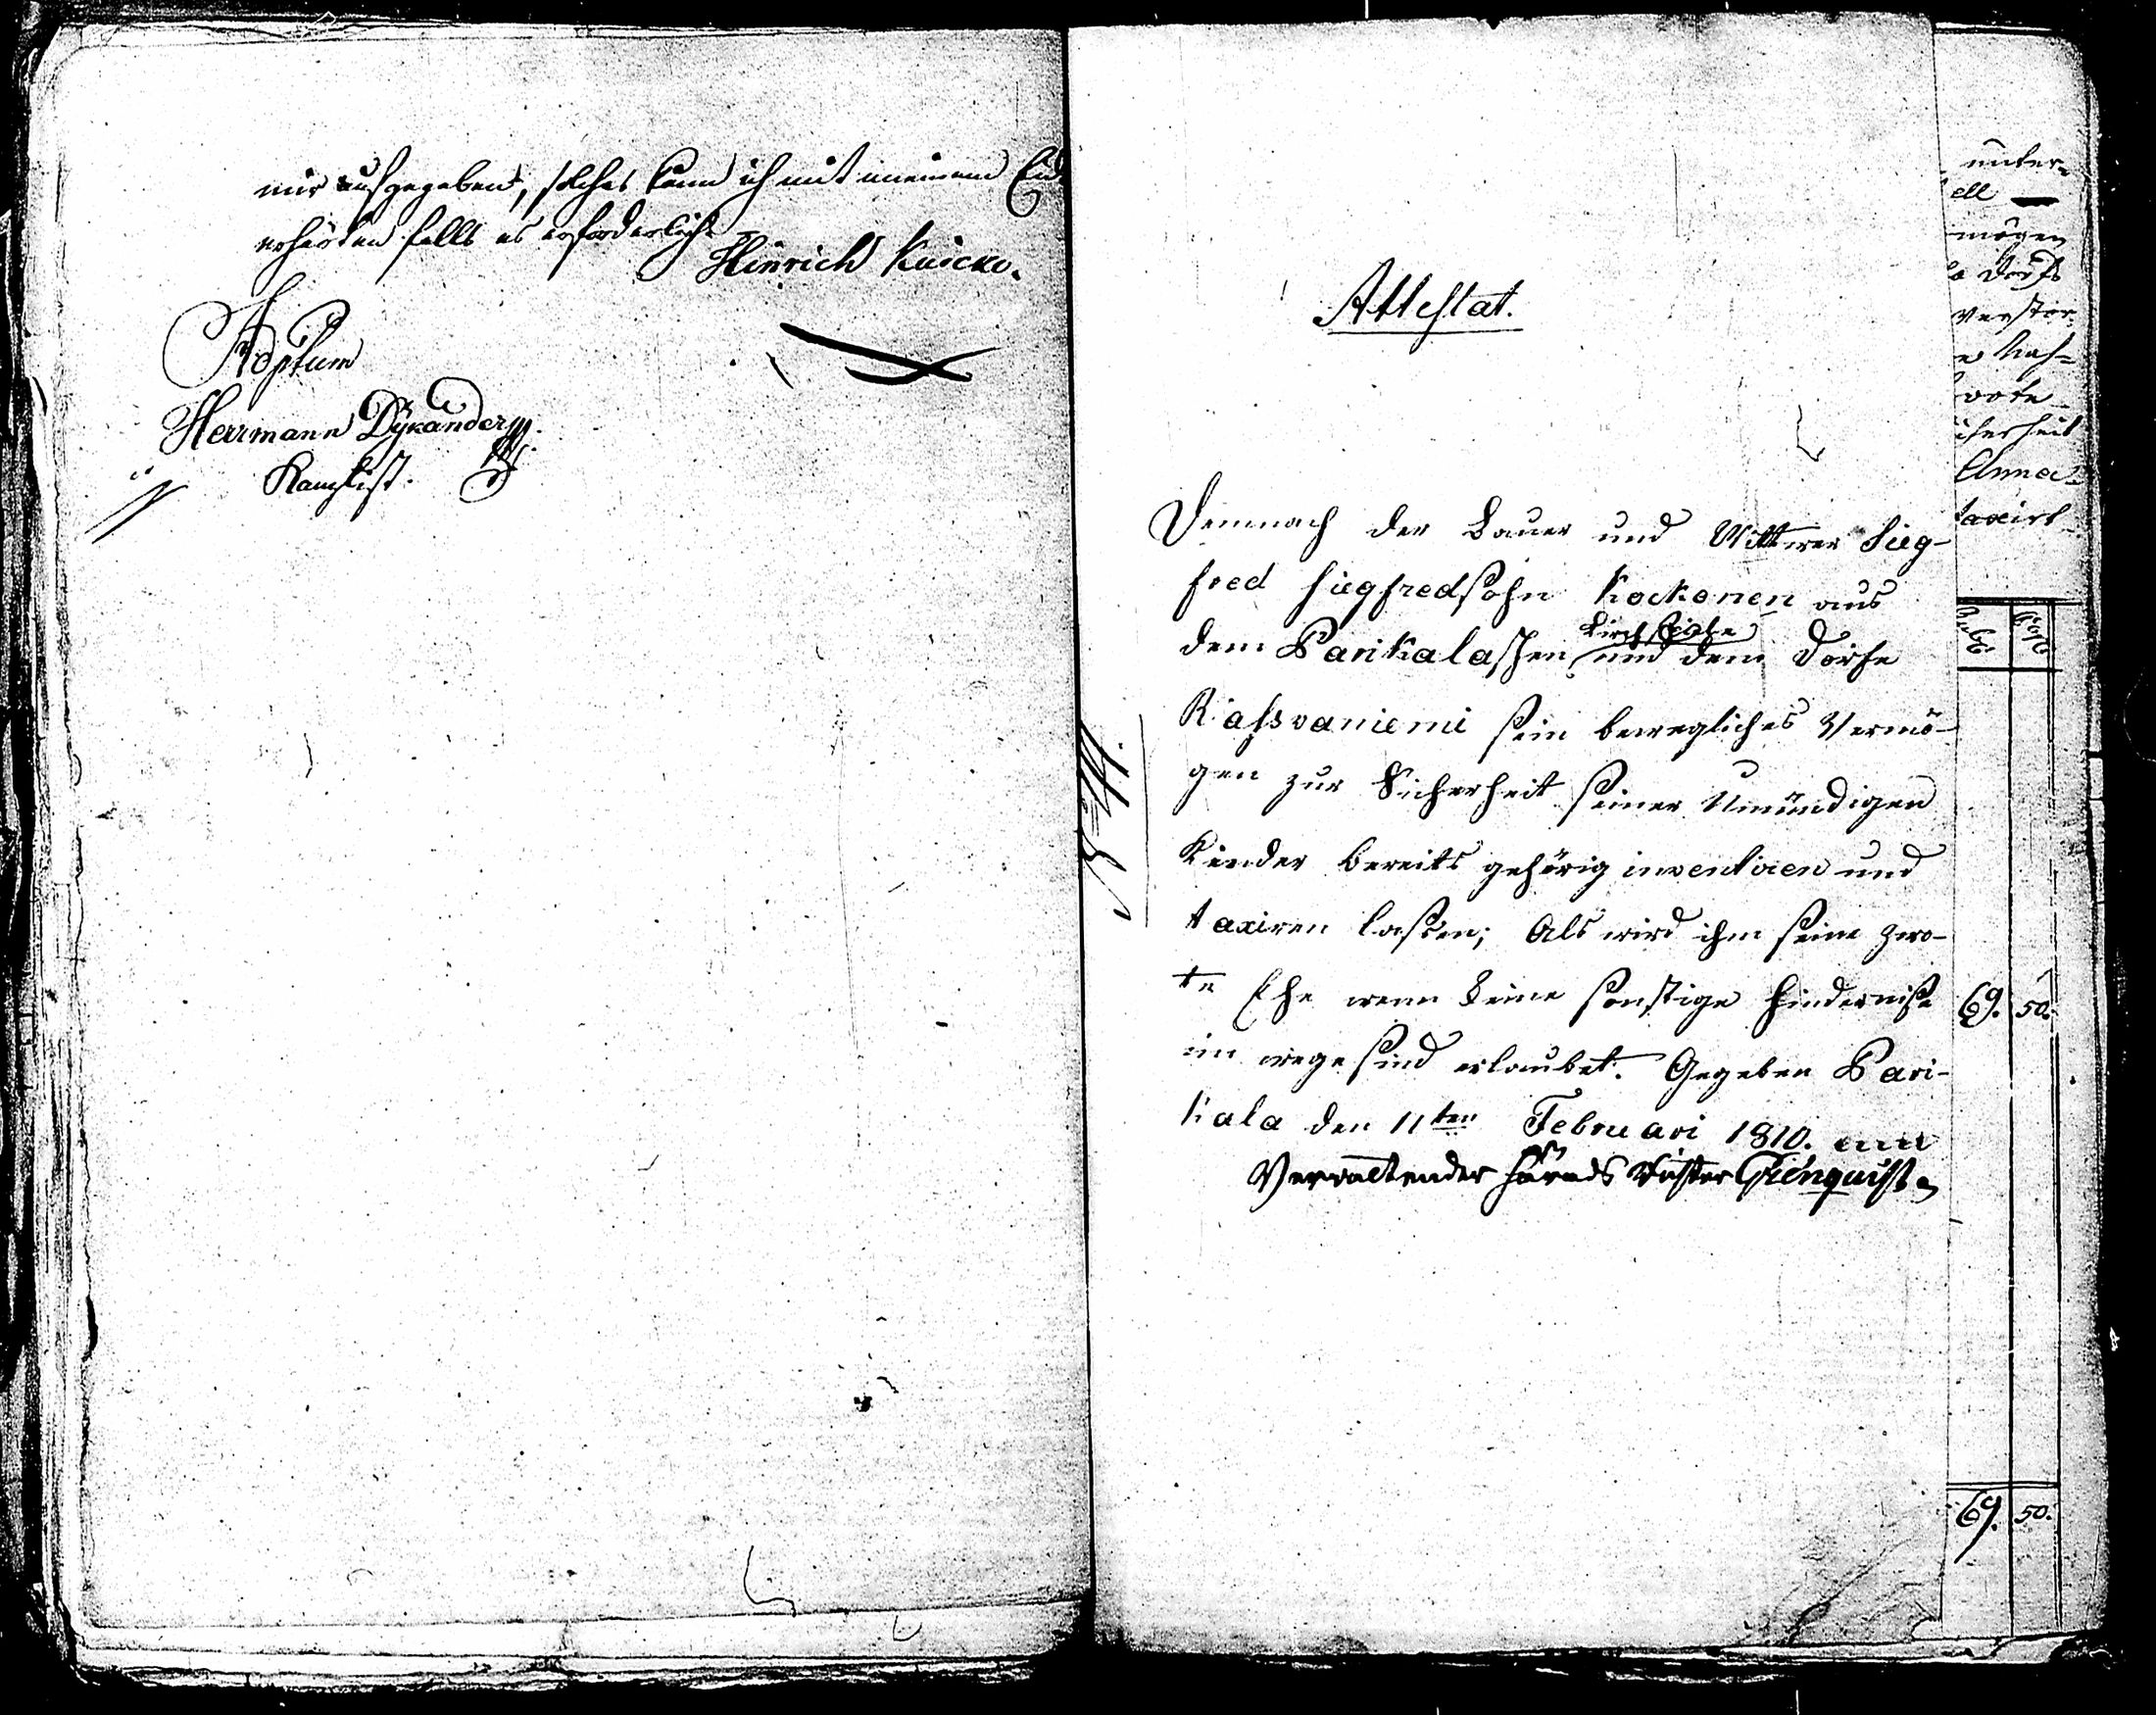 mir aufgegeben, solches kann ich mit meinem Eid
erhärten falls es erforderlich
Hinrich Kuicko.
Herrmann Dykander
Kanzlist.
Attestat.
N 44.
Demnach der Bauer und Wittwer Sieg-
fred Siegfredsohn Kockonen aus
dem Parikalaschen Kirchspiele und dem Dorfe
Rassvaniemi sein bewegliches Vermö-
gen zur Sicherheit seiner Unmündigen
Kinder bereits gehörig inventiren und
taxiren lassen; Als wird ihm seine zwo-
te Ehe wenn keine sonstige Hindernisse
im wege sind erlaubet. Gegeben Pari-
kala den 11ten Februari 1810.
Verwaltender Härads Richter
unter-
ell
mögen
Dorfs
verstor-
Nach-
icherheit
Anna
taxirt
69. 50.
69. 50.